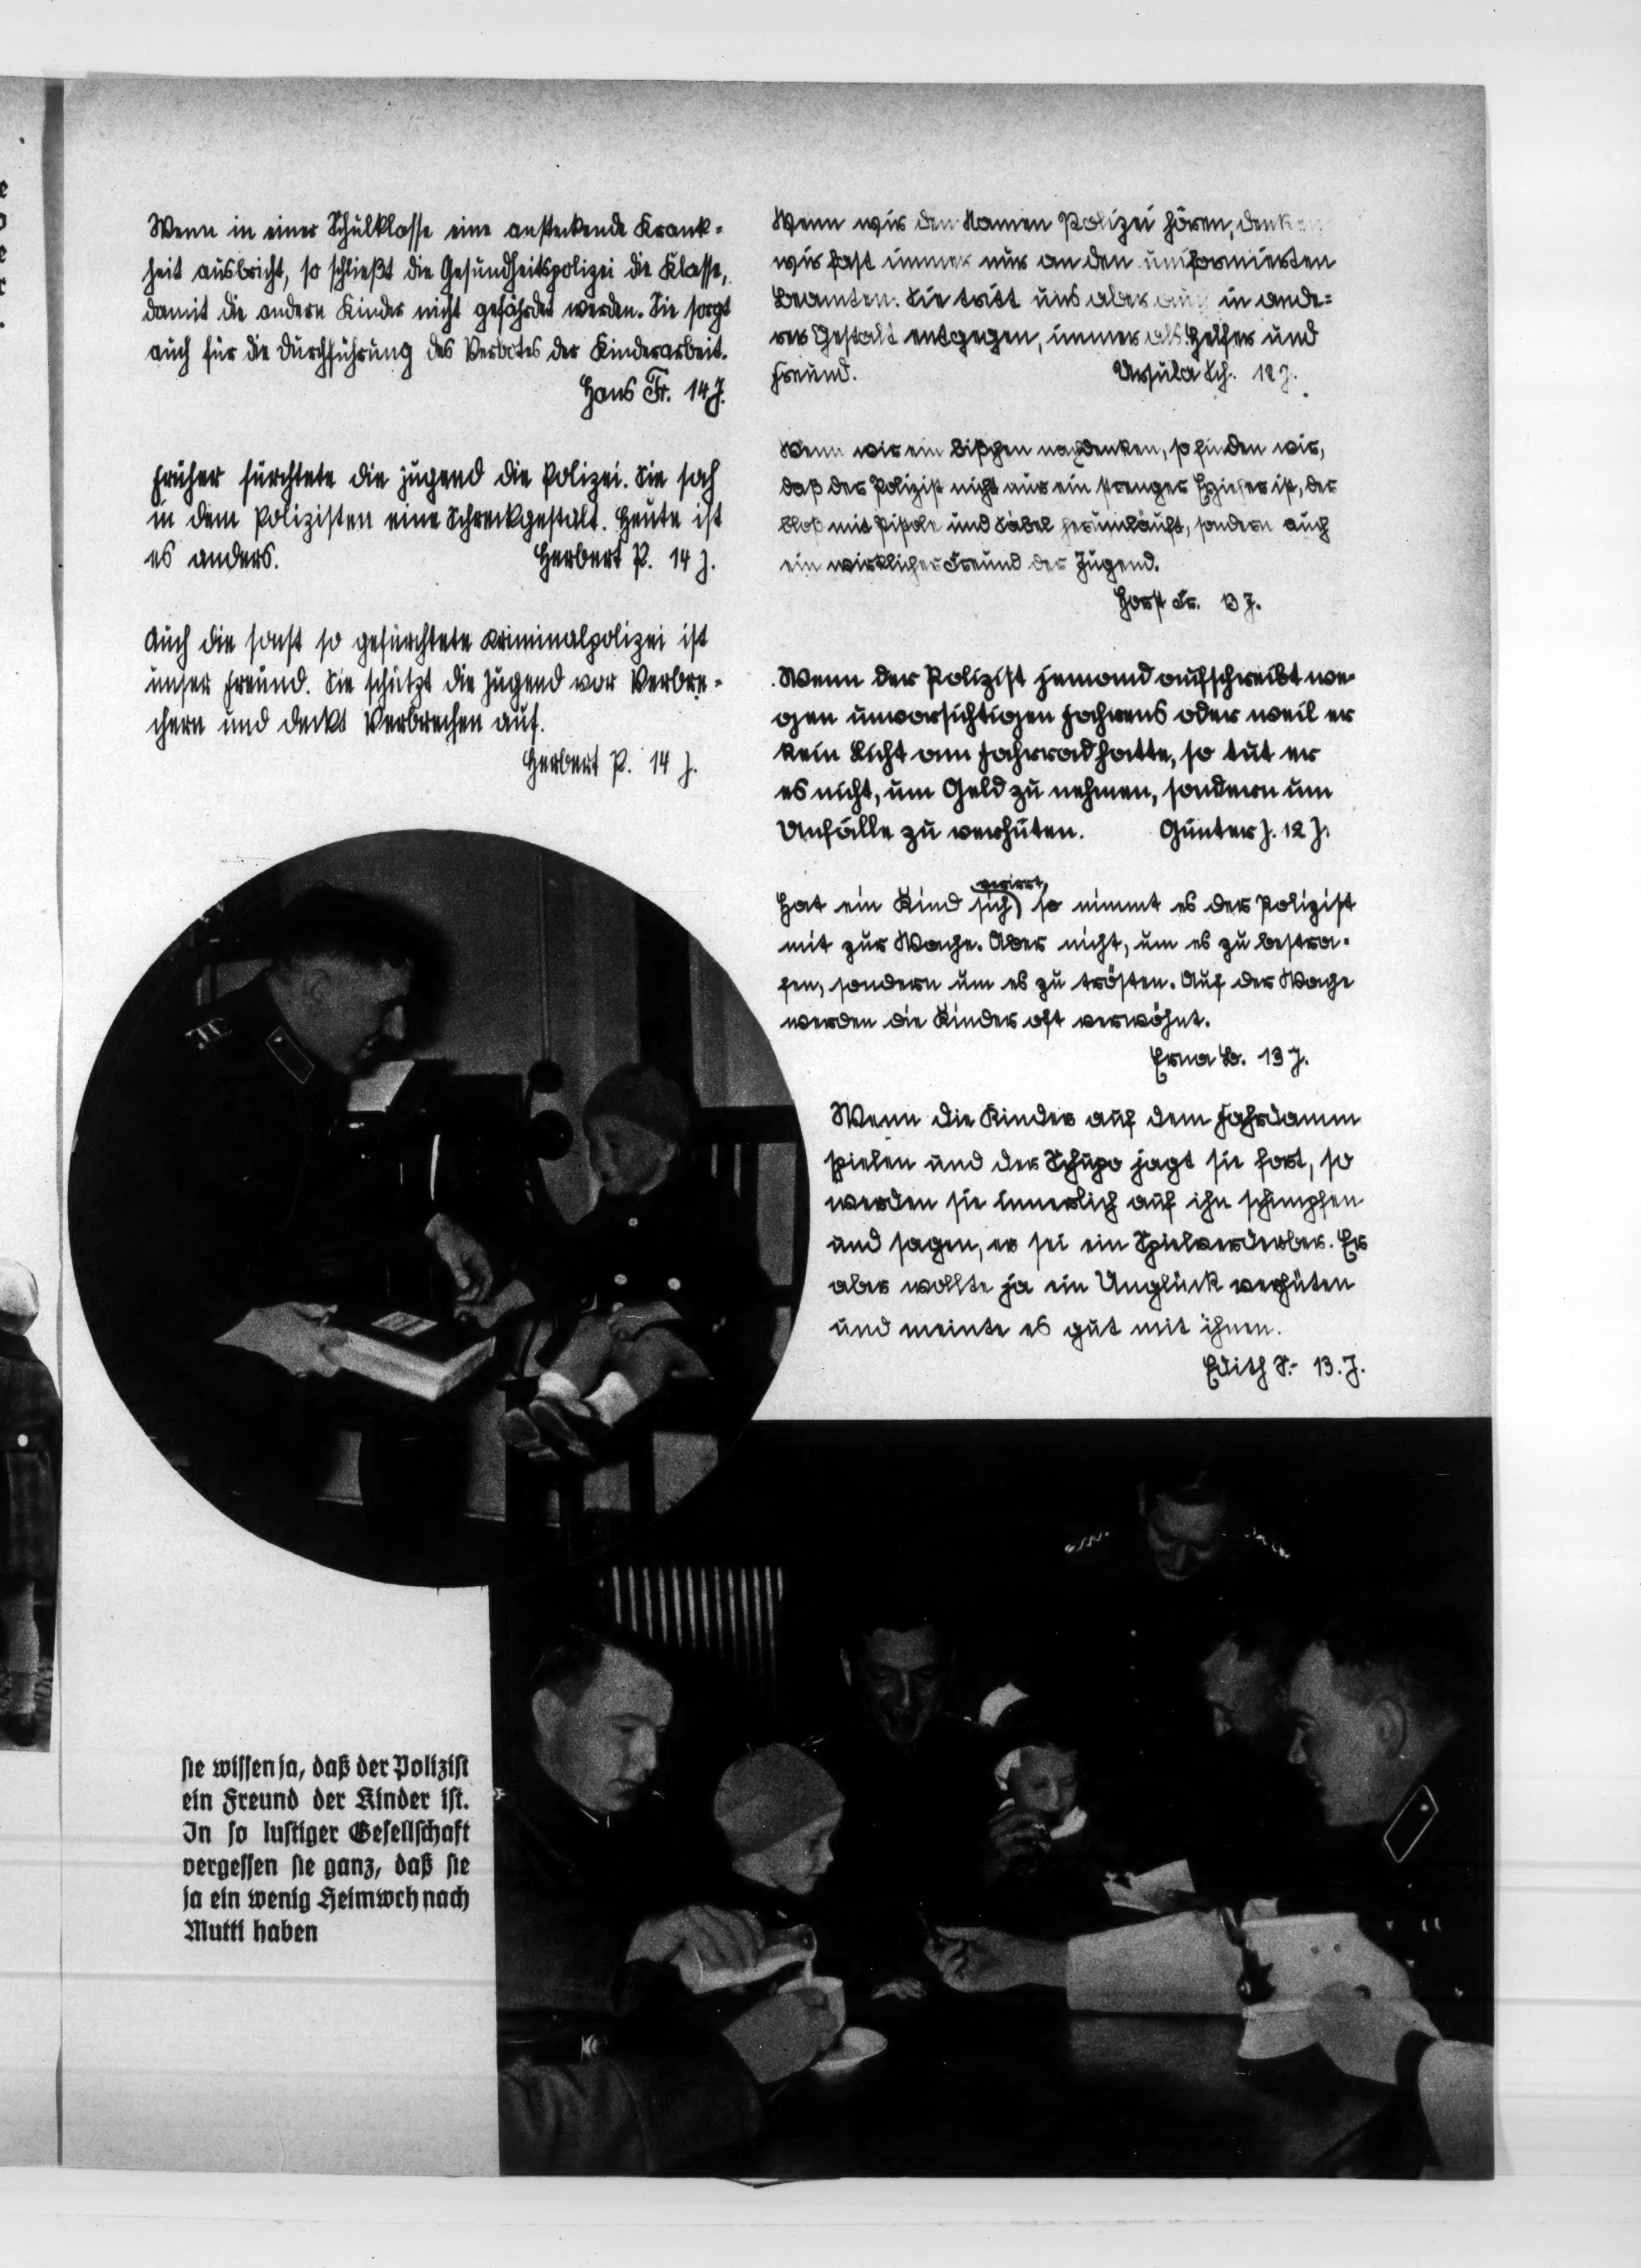 Wenn in einer Schulklasse eine ansteckende Krank=
heit ausbricht, so schließt die Gesundheitspolizei die Klasse,
damit die andern Kinder nicht gefährdet werden. Sie sorgt
auch für die Durchführung des Verbotes der Kinderarbeit.
Hans Fr. 14 J.
Früher fürchtete die Jugend die Polizei. Sie sah
in dem Polizisten eine Schreckgestalt. Heute ist
es anders. Herbert P. 14 J.
Auch die sonst so gefürchtete Kriminalpolizei ist
unser Freund. Sie schützt die Jugend vor Verbre=
chern und deckt Verbrechen auf.
Herbert P. 14 J.
Wenn wir den Namen Polizei hören, denken
wir fast immer nur an den uniformierten
Beamten. Sie tritt uns aber auch in ande=
rer Gestalt entgegen, immer als Helfer und
Freund. Ursula Sch. 12 J.
Wenn wir ein bißchen nachdenken, so finden wir,
daß der Polizist nicht nur ein strenger Erzieher ist, der
bloß mit Pistole und Säbel herumläuft, sondern auch
ein wirklicher Freund der Jugend.
Horst Fr. 13 J.
Wenn der Polizist jemand aufschreibt we-
gen unvorsichtigen Fahrens oder weil er
kein Licht am Fahrrad hatte, so tut er
es nicht, um Geld zu nehmen, sondern um
Unfälle zu verhüten. Günter J. 12 J.
verirrt,
Hat ein Kind sich so nimmt es der Polizist
mit zur Wache. Aber nicht, um es zu bestra-
fen, sondern um es zu trösten. Auf der Wache
werden die Kinder oft verwöhnt.
Erna B. 13 J.
Wenn die Kinder auf dem Fahrdamm
spielen und der Schupo jagt sie fort, so
werden sie innerlich auf ihn schimpfen
und sagen, er sei ein Spielverderber. Er
aber wollte ja ein Unglück verhüten
und meinte es gut mit ihnen.
Edith S.- 13. J.
sie wissen ja, daß der Polizist
ein Freund der Kinder ist.
In so lustiger Gesellschaft
vergessen sie ganz, daß sie
ja ein wenig Heimweh nach
Mutti haben